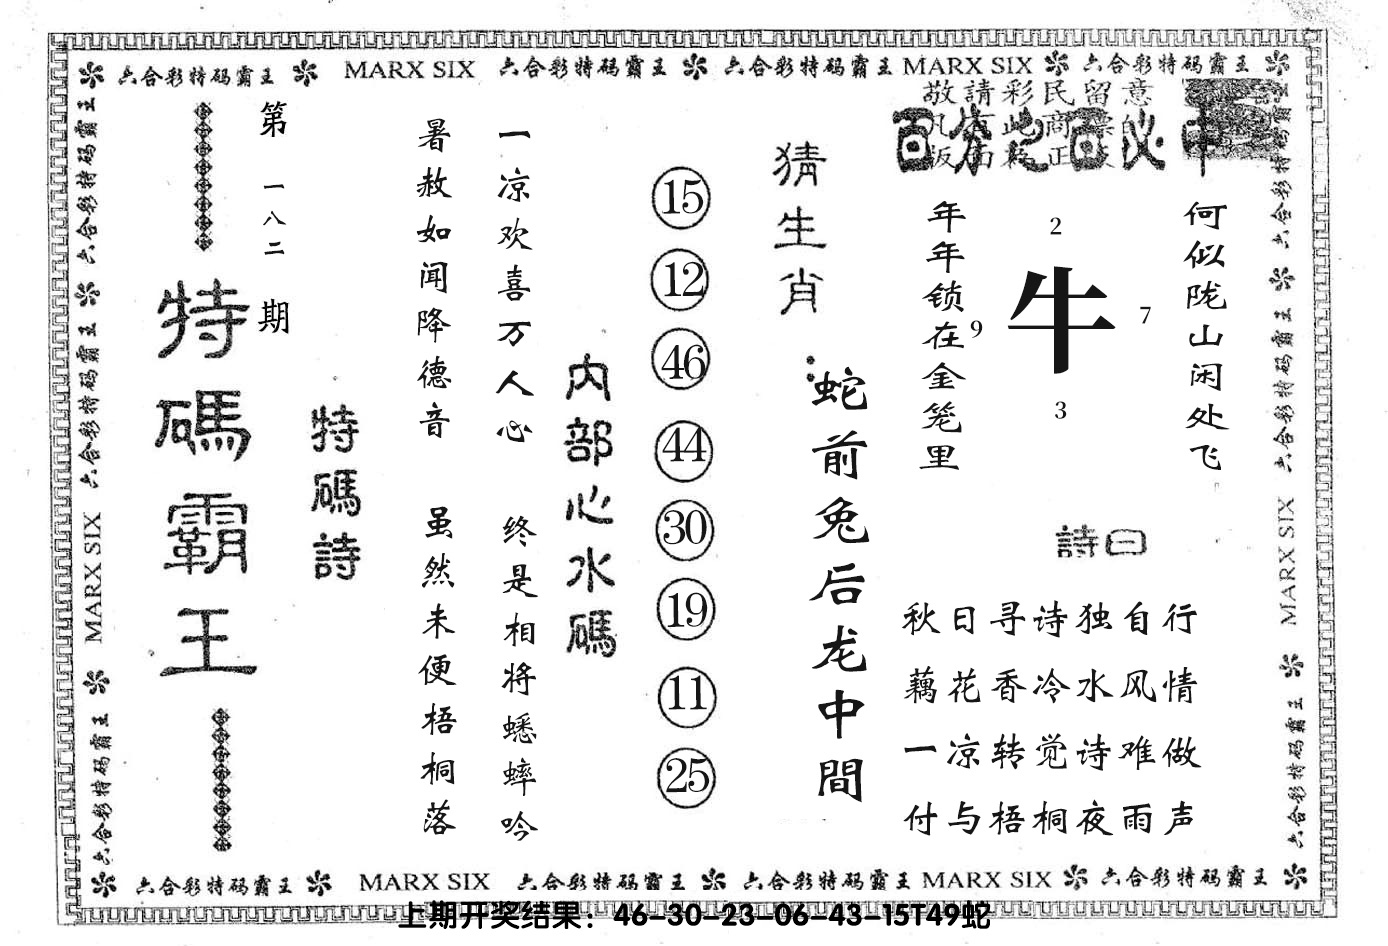 六合彩特码霸王 MARX SIX 六合彩特码霸王 六合彩特码霸王 MARX SIX 六合彩特码霸王
敬請彩民留意
百分之百必中
第一八二期
特碼霸王
特碼詩
一凉欢喜万人心 终是相将蟋蟀吟
暑赦如闻降德音 虽然未便梧桐落
内部心水碼
15
12
46
44
30
19
11
25
猜生肖:
蛇前兔后龙中間
何似陇山闲处飞
年年锁在金笼里
2
牛
9
7
3
詩曰
秋日寻诗独自行
藕花香冷水风情
一凉转觉诗难做
付与梧桐夜雨声
六合彩特码霸王 MARX SIX 六合彩特码霸王
六合彩特码霸王 六合彩特码霸王 MARX SIX 六合彩特码霸王
六合彩特码霸王 六合彩特码霸王 MARX SIX 六合彩特码霸王
六合彩特码霸王 MARX SIX 六合彩特码霸王 六合彩特码霸王 MARX SIX 六合彩特码霸王
上期开奖结果：46-30-23-06-43-15T49蛇